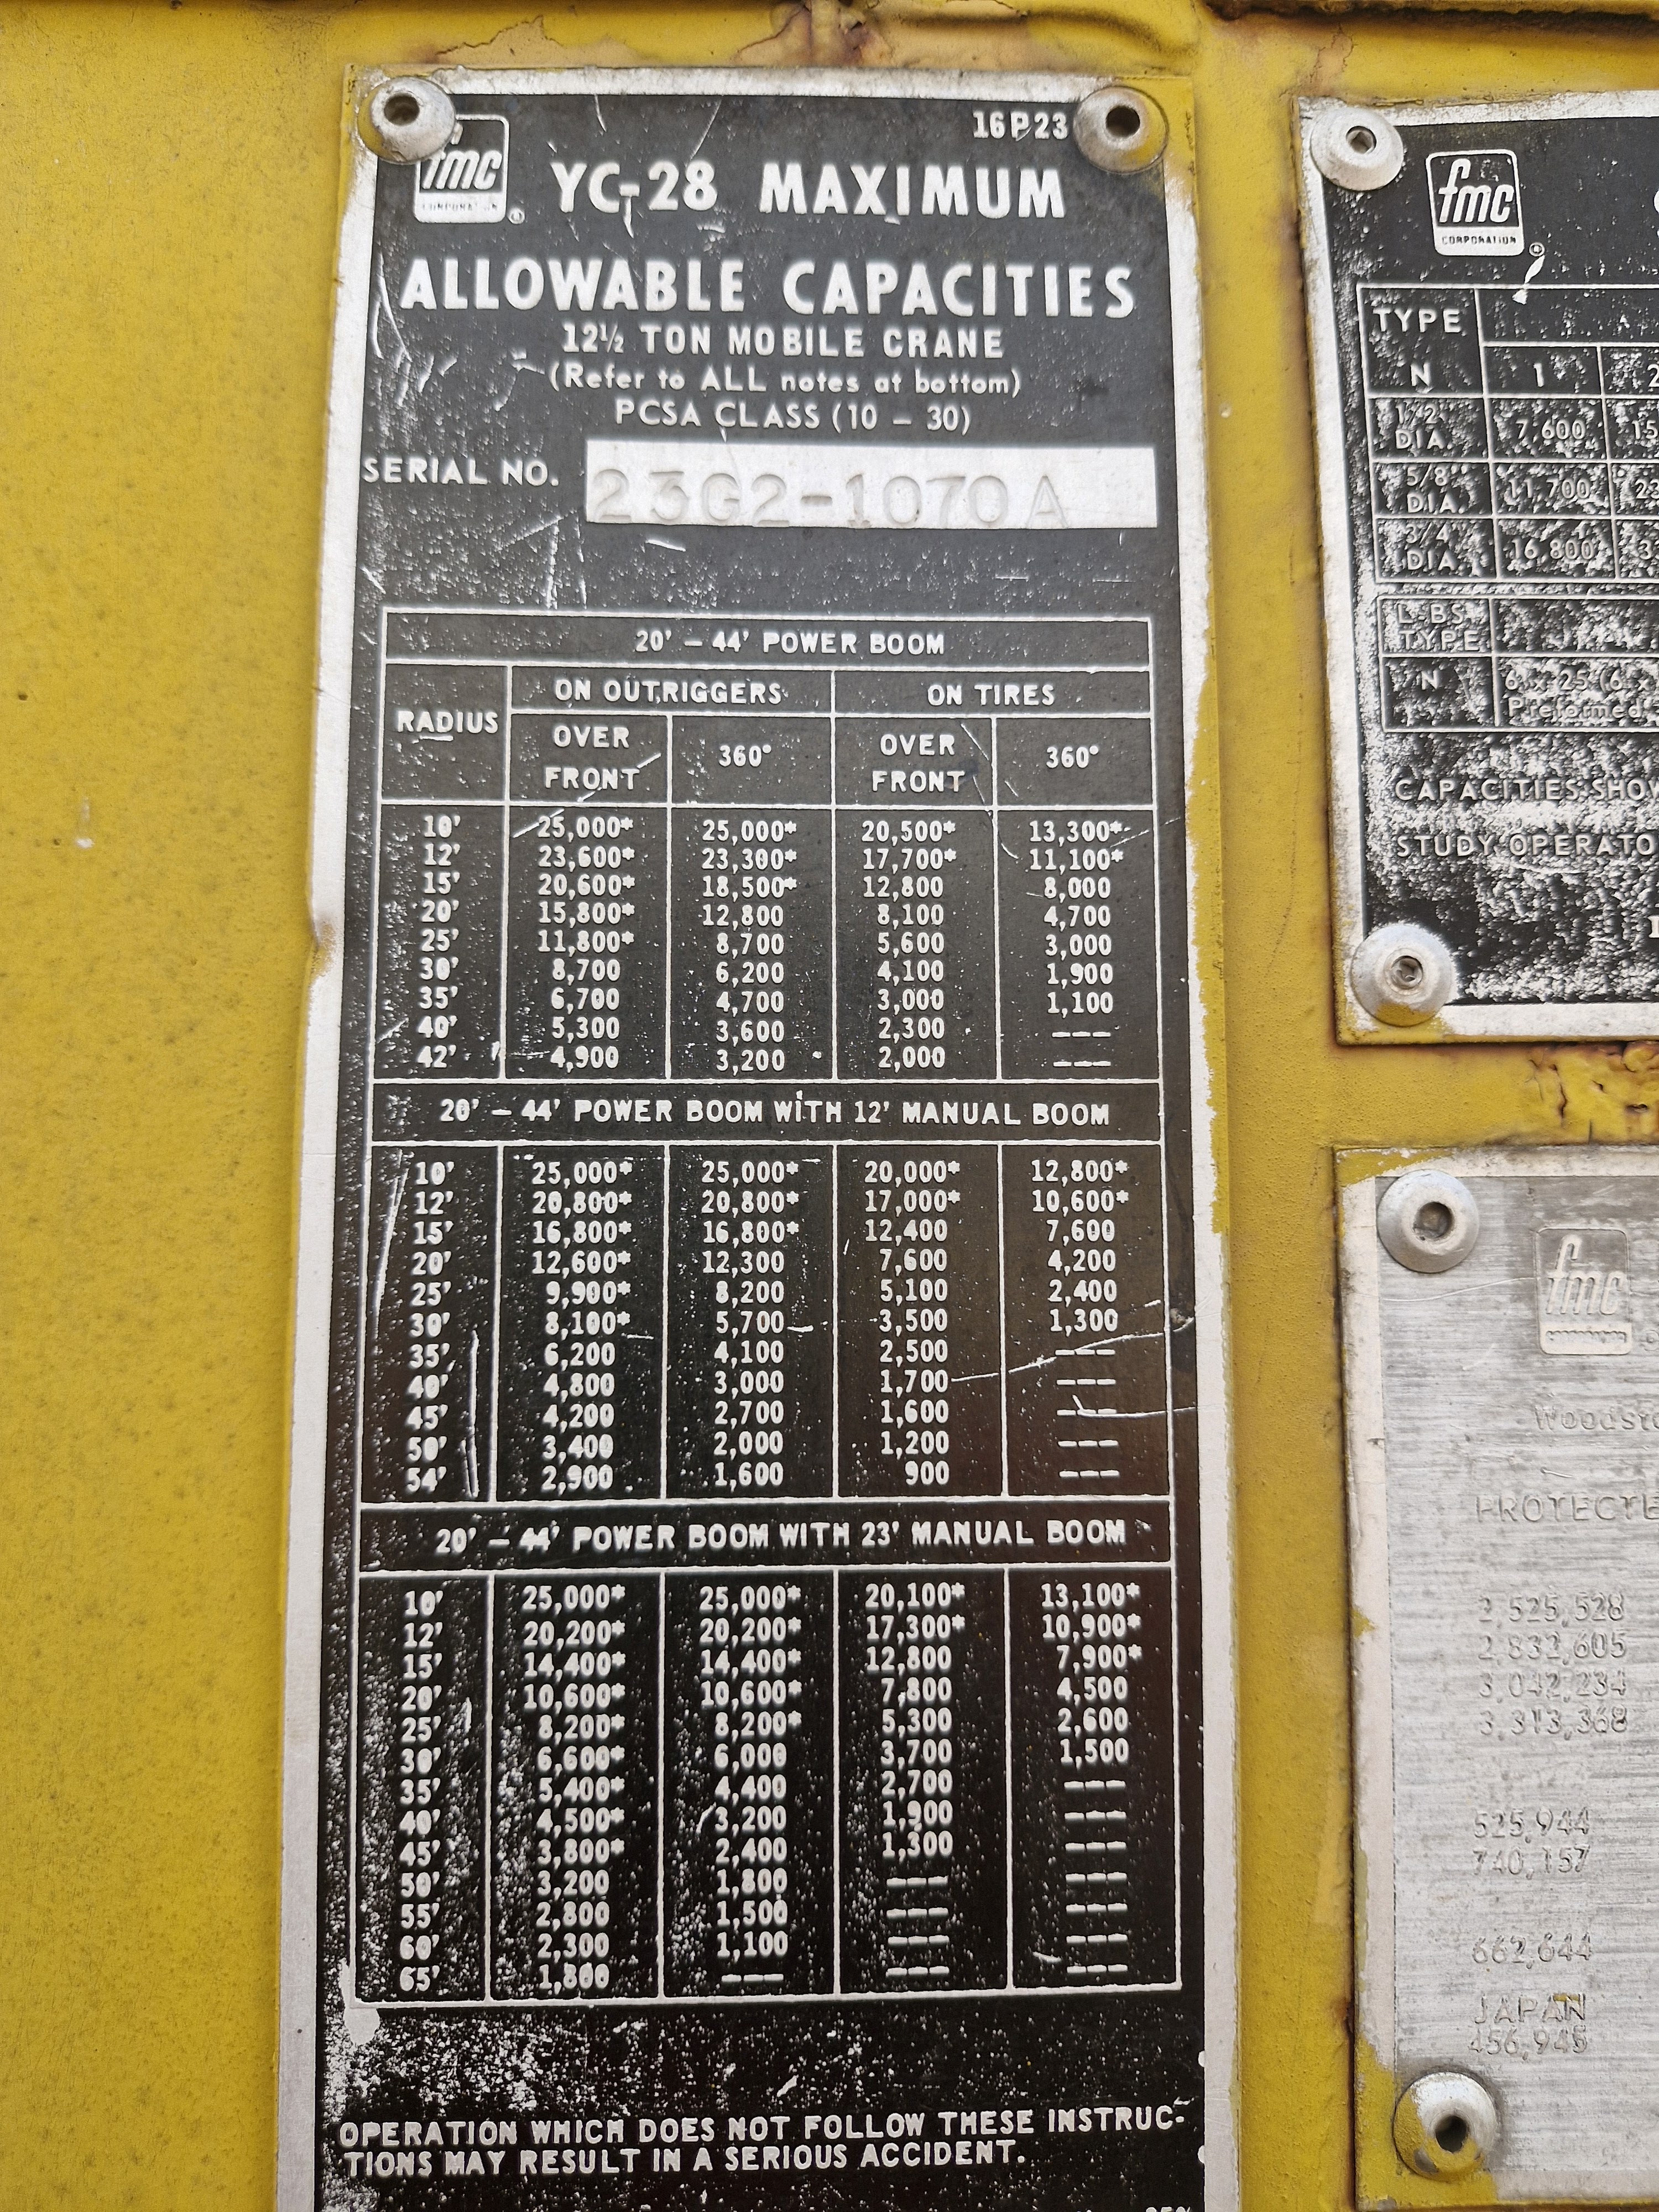 fmc
CORPORATION
16P23
YC-28 MAXIMUM
ALLOWABLE CAPACITIES
12½ TON MOBILE CRANE
(Refer to ALL notes at bottom)
PCSA CLASS (10 – 30)
SERIAL NO. 23G2-1070A
20' – 44' POWER BOOM
RADIUS ON OUTRIGGERS ON TIRES
OVER FRONT 360° OVER FRONT 360°
10' 25,000* 25,000* 20,500* 13,300*
12' 23,600* 23,300* 17,700* 11,100*
15' 20,600* 18,500* 12,800 8,000
20' 15,800* 12,800 8,100 4,700
25' 11,800* 8,700 5,600 3,000
30' 8,700 6,200 4,100 1,900
35' 6,700 4,700 3,000 1,100
40' 5,300 3,600 2,300 ---
42' 4,900 3,200 2,000 ---
20' – 44' POWER BOOM WITH 12' MANUAL BOOM
10' 25,000* 25,000* 20,000* 12,800*
12' 20,800* 20,800* 17,000* 10,600*
15' 16,800* 16,800* 12,400 7,600
20' 12,600* 12,300 7,600 4,200
25' 9,900* 8,200 5,100 2,400
30' 8,100* 5,700 3,500 1,300
35' 6,200 4,100 2,500 ---
40' 4,800 3,000 1,700 ---
45' 4,200 2,700 1,600 ---
50' 3,400 2,000 1,200 ---
54' 2,900 1,600 900 ---
20' – 44' POWER BOOM WITH 23' MANUAL BOOM
10' 25,000* 25,000* 20,100* 13,100*
12' 20,200* 20,200* 17,300* 10,900*
15' 14,400* 14,400* 12,800 7,900*
20' 10,600* 10,600* 7,800 4,500
25' 8,200* 8,200* 5,300 2,600
30' 6,600* 6,000 3,700 1,500
35' 5,400* 4,400 2,700 ---
40' 4,500* 3,200 1,900 ---
45' 3,800* 2,400 1,300 ---
50' 3,200 1,800 --- ---
55' 2,800 1,500 --- ---
60' 2,300 1,100 --- ---
65' 1,800 --- --- ---
OPERATION WHICH DOES NOT FOLLOW THESE INSTRUC-
TIONS MAY RESULT IN A SERIOUS ACCIDENT.
fmc
CORPORATION
TYPE
N 1
1/2" DIA. 7,600
5/8" DIA. 11,700
3/4" DIA. 16,800
LBS.
TYPE
N
CAPACITIES
STUDY
fmc
2,525,528
2,832,605
3,042,234
3,313,368
525,944
740,157
662,644
JAPAN
456,948